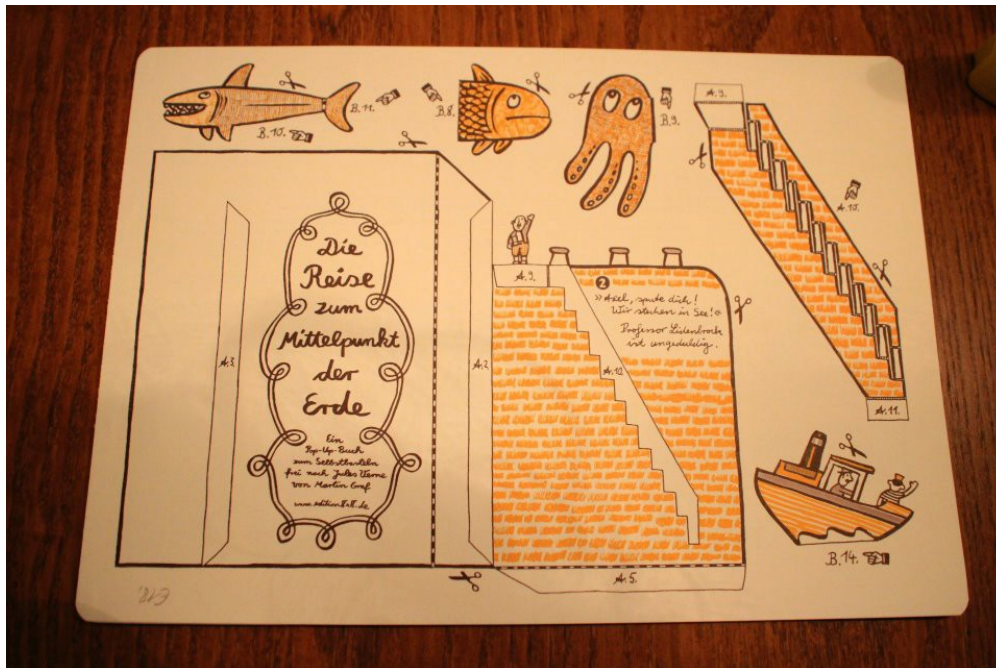 B. 11.
B. 10.
B. 8.
B. 9.
A. 9.
A. 10.
A. 11.
Die
Reise
zum
Mittelpunkt
der
Erde
Ein
Pop-Up-Buch
zum Selbstbasteln
frei nach Jules Verne
von Martin Graf
www.edition8x8.de
A. 3.
A. 2.
A. 9.
2
»Axel, spute dich!
Wir stechen in See!«
Professor Lidenbrock
ist ungeduldig.
A. 10.
A. 5.
B. 14.